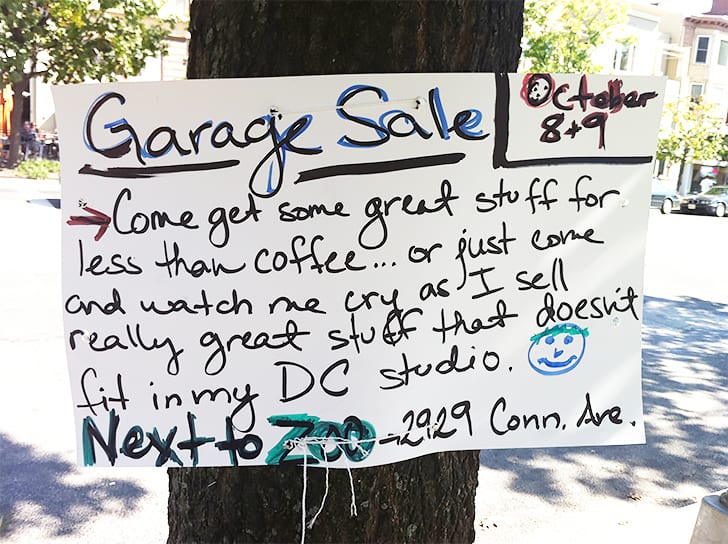 Garage Sale
October
8+9
→ Come get some great stuff for
less than coffee... or just come
and watch me cry as I sell
really great stuff that doesn't
fit in my DC studio.
Next to Zoo - 2929 Conn. Ave.